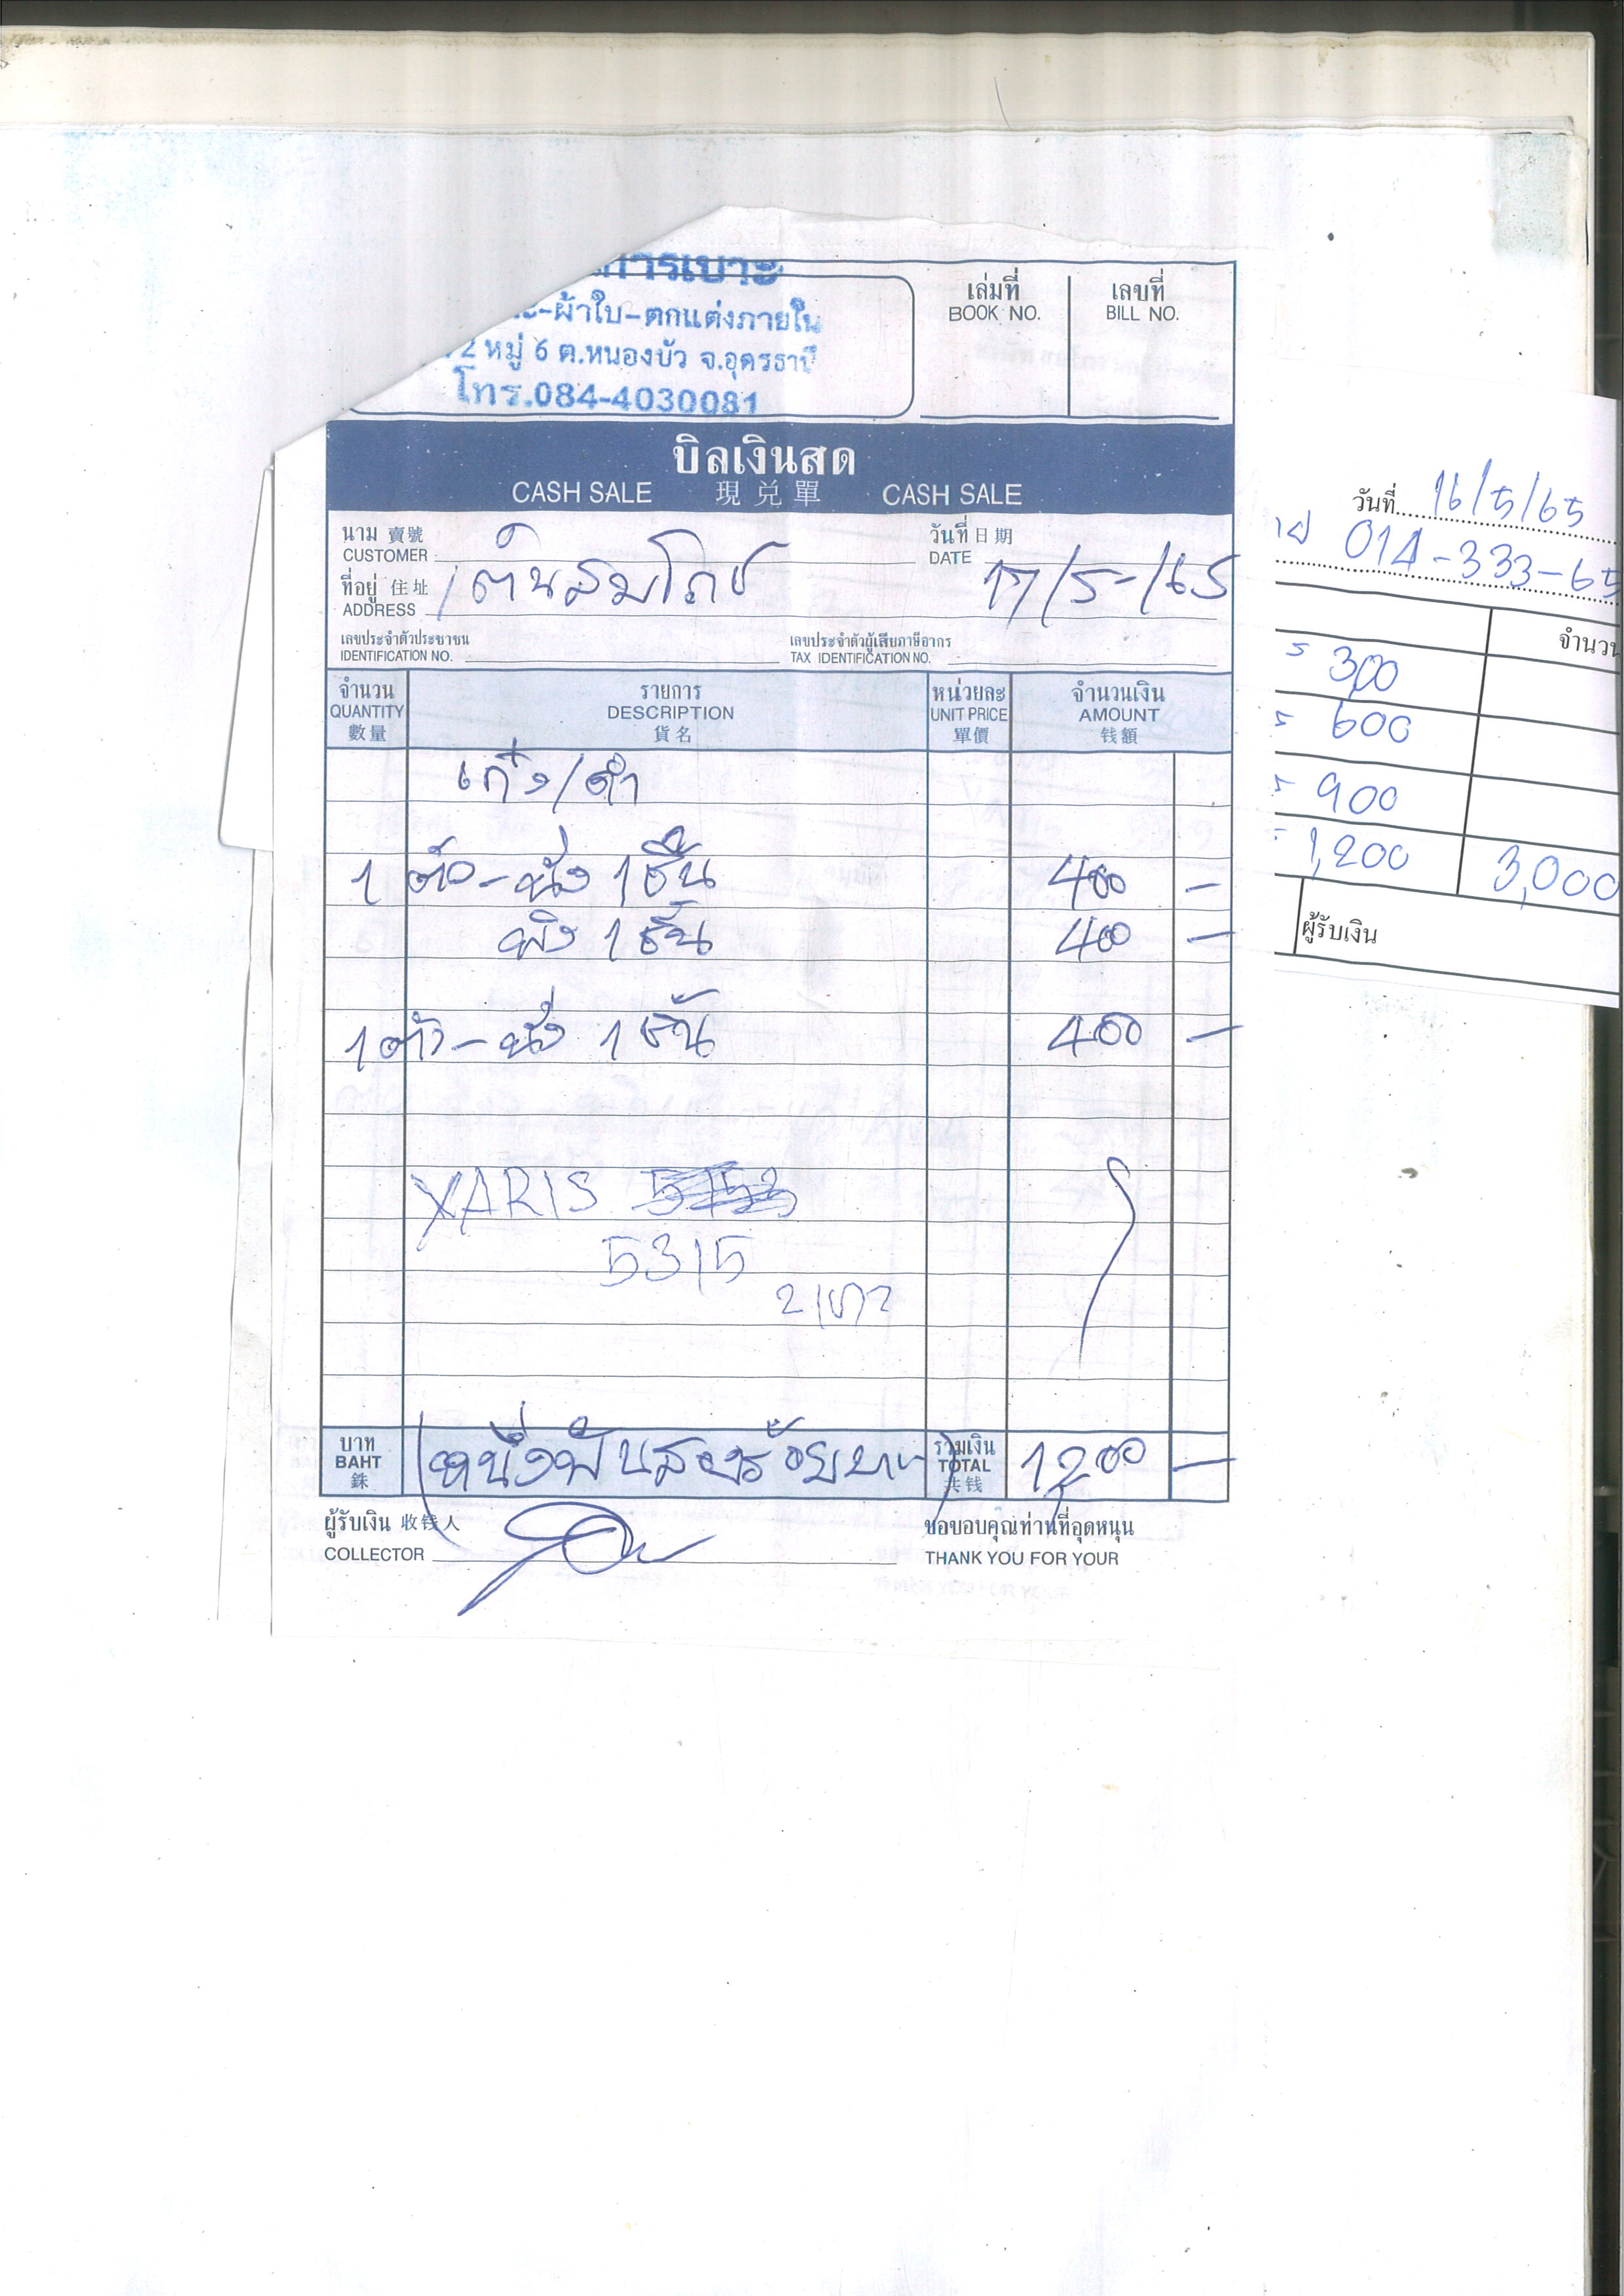 การเบาะ
-ผ้าใบ-ตกแต่งภายใน
2 หมู่ 6 ต.หนองบัว จ.อุดรธานี
โทร.084-4030081
เล่มที่ เลขที่
BOOK NO. BILL NO.
บิลเงินสด
CASH SALE 現兌單 CASH SALE
นาม 賣號 วันที่ 日期
CUSTOMER DATE 17/5-/65
ที่อยู่ 住址 เต็นสมโภช
ADDRESS
เลขประจำตัวประชาชน เลขประจำตัวผู้เสียภาษีอากร
IDENTIFICATION NO. TAX IDENTIFICATION NO.
จำนวน รายการ หน่วยละ จำนวนเงิน
QUANTITY DESCRIPTION UNIT PRICE AMOUNT
數量 貨名 單價 钱額
เก๋ง/ดำ
1 ตัว-นั่ง 1 ชิ้น 400 —
พิง 1 ชิ้น 400 —
1 ตัว-นั่ง 1 ชิ้น 400 —
YARIS
5315
บาท หนึ่งพันสองร้อยบาท รวมเงิน 1200 —
BAHT TOTAL
銖 共钱
ผู้รับเงิน 收钱人 ขอขอบคุณท่านที่อุดหนุน
COLLECTOR THANK YOU FOR YOUR
วันที่ 16/5/65
014-333-65
จำนวน
= 300
= 600
= 900
= 1,200 3,000
ผู้รับเงิน